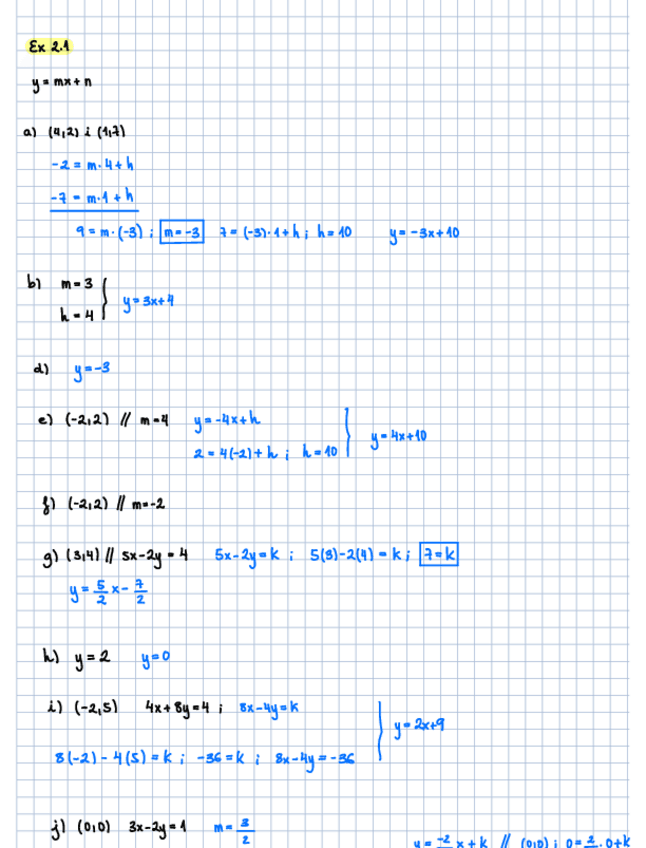 Ex 2.1
y = mx + n
a) (4,2) i (1,7)
-2 = m·4+h
-7 = m·1+h
9 = m·(-3) ; m=-3 7 = (-3)·1+h ; h=10 y = -3x+10
b) m=3
h=4 } y=3x+4
d) y=-3
e) (-2,2) // m=4 y=-4x+h
2 = 4(-2)+h ; h=10 } y=4x+10
f) (-2,2) // m=-2
g) (3,4) // 5x-2y=4 5x-2y=k ; 5(3)-2(4)=k ; 7=k
y = 5/2 x - 7/2
h) y=2 y=0
i) (-2,5) 4x+8y=4 ; 8x-4y=k
8(-2)-4(5)=k ; -36=k ; 8x-4y=-36 } y=2x+9
j) (0,0) 3x-2y=1 m= 3/2
y = -2 x+k // (0,0) ; 0= 2 ·0+k